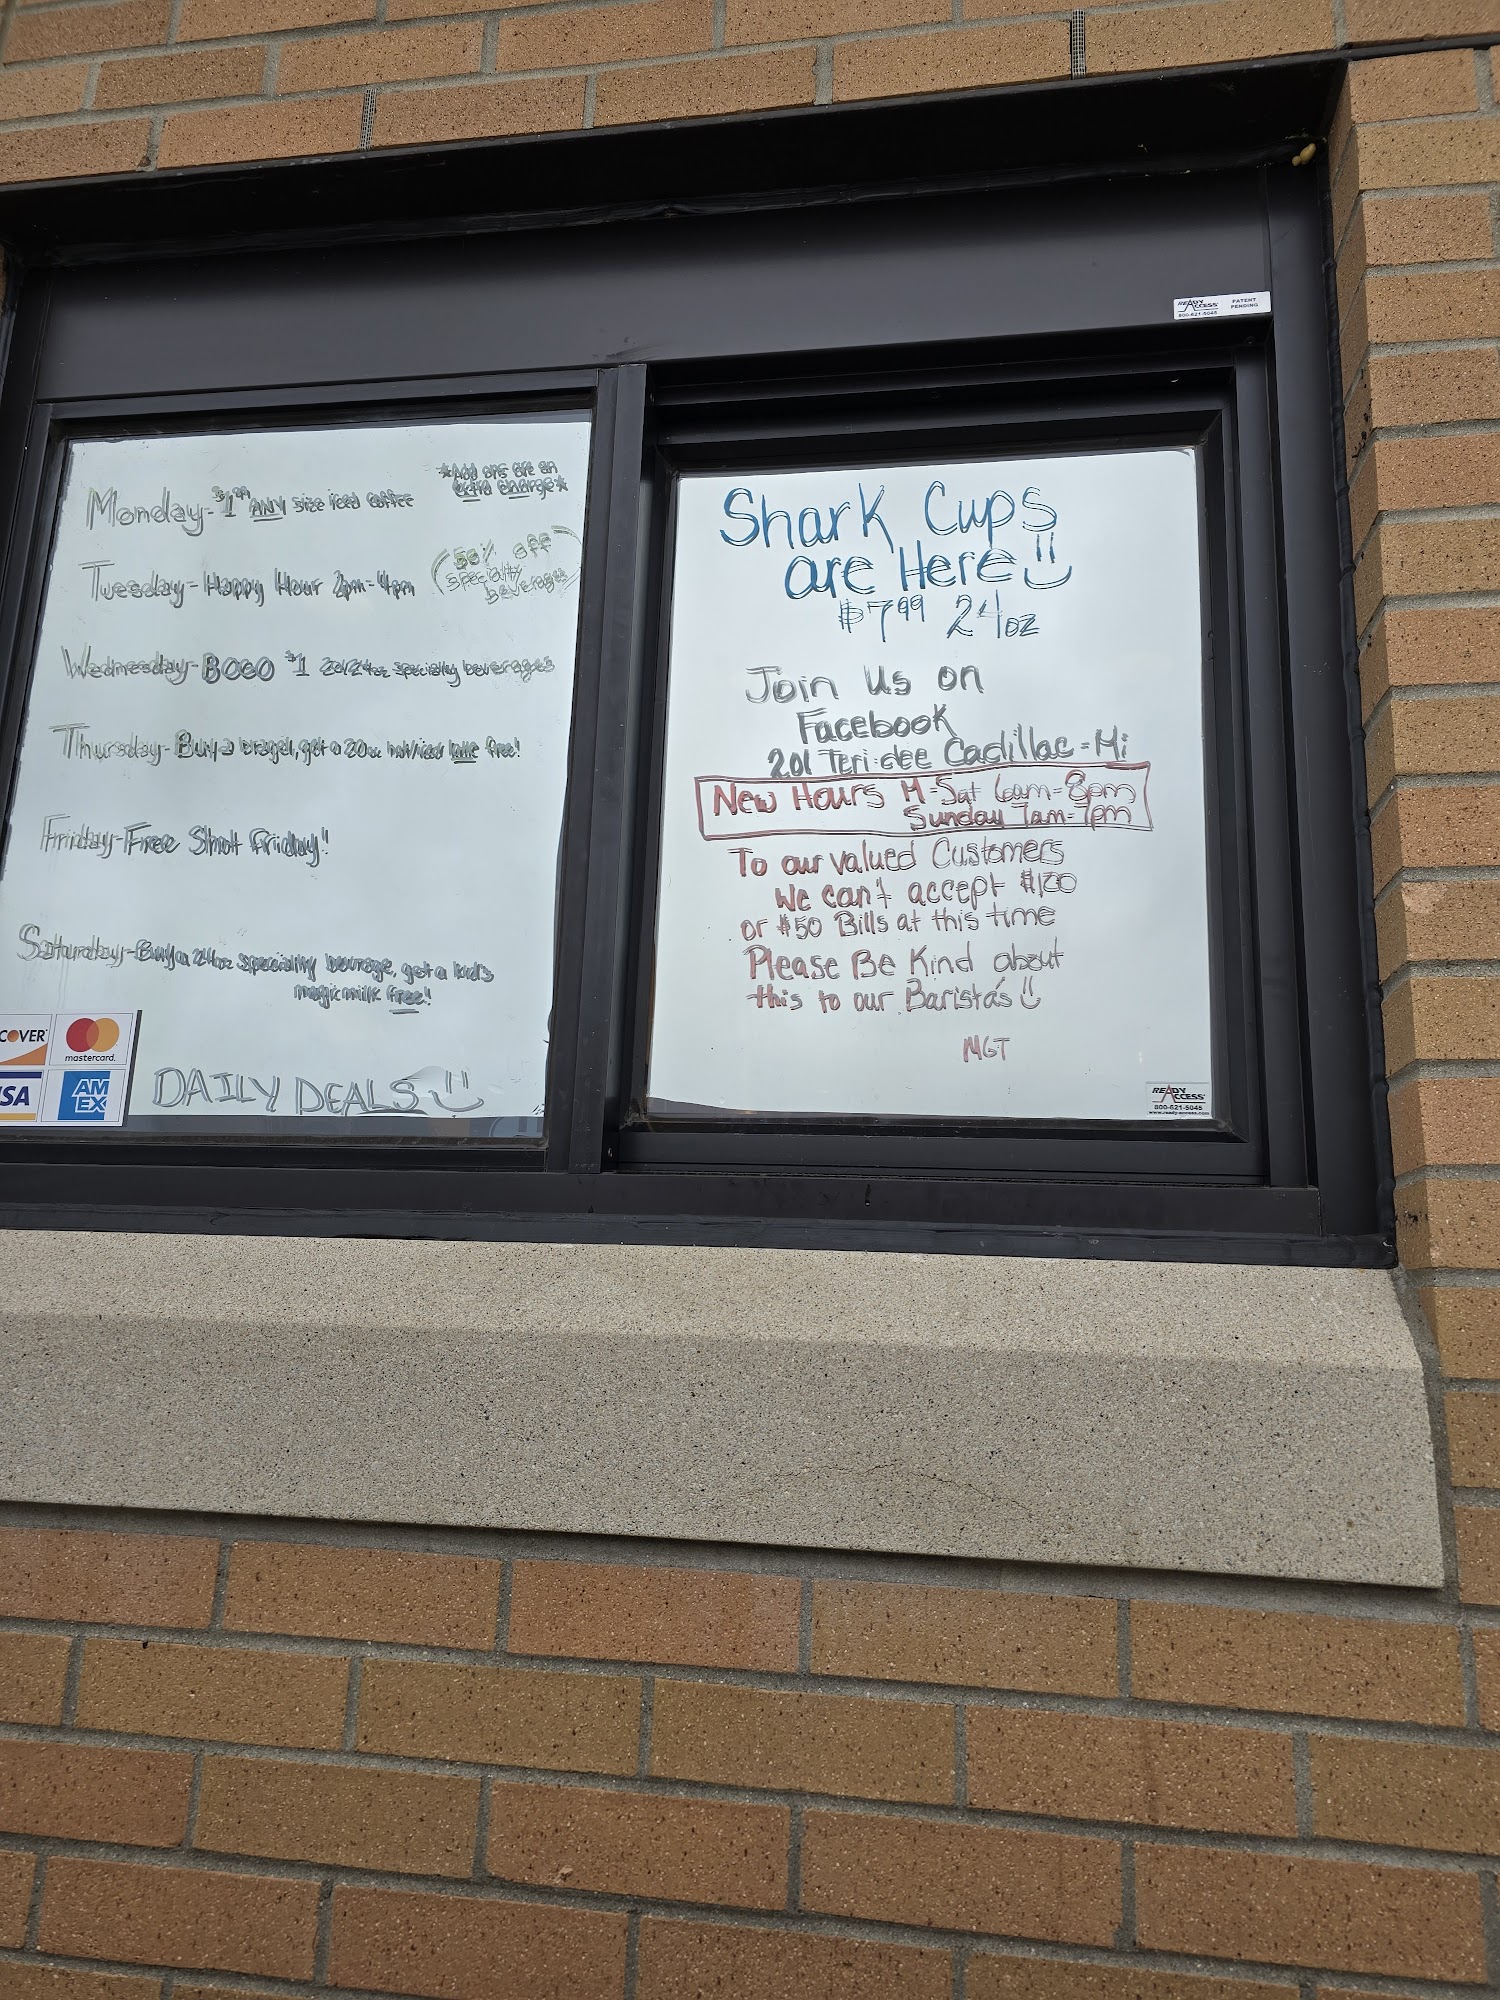 READY ACCESS
800-621-5045
PATENT PENDING
Monday - $1.99 ANY size iced coffee
*Add ons are an
extra charge*
Tuesday - Happy Hour 2pm-4pm
(50% off
specialty
beverages)
Wednesday - BOGO $1 20z/24oz specialty beverages
Thursday - Buy a bagel, get a 20oz hot/iced latte free!
Friday - Free Shot Friday!
Saturday - Buy a 24oz specialty beverage, get a kid's
magic milk free!
COVER
mastercard.
ISA
AM
EX
DAILY DEALS
Shark Cups
are Here
$7.99 24oz
Join Us on
Facebook
201 Teri-dee Cadillac-Mi
New Hours M-Sat 6am-8pm
Sunday 7am-7pm
To our valued Customers
We can't accept $100
or $50 Bills at this time
Please Be Kind about
this to our Barista's
MGT
READY ACCESS
800-621-5045
www.ready-access.com